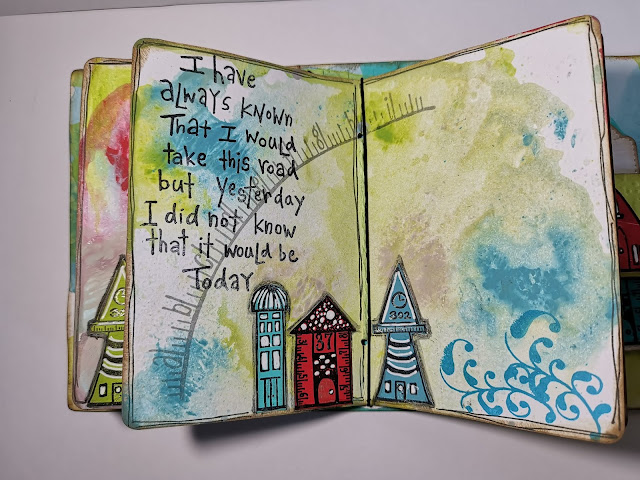 I have
always known
That I would
take this road
but yesterday
I did not know
that it would be
Today
37
302